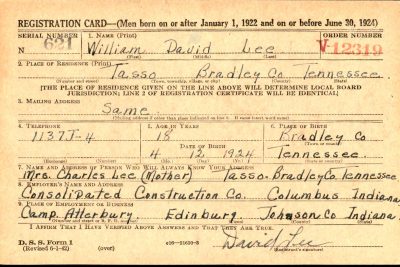 REGISTRATION CARD—(Men born on or after January 1, 1922 and on or before June 30, 1924)
SERIAL NUMBER 1. NAME (Print) ORDER NUMBER
N 621 William David Lee V-12319
2. PLACE OF RESIDENCE (Print)
Tasso Bradley Co Tennessee
(Number and street) (Town, township, village, or city) (County) (State)
[THE PLACE OF RESIDENCE GIVEN ON THE LINE ABOVE WILL DETERMINE LOCAL BOARD
JURISDICTION; LINE 2 OF REGISTRATION CERTIFICATE WILL BE IDENTICAL]
3. MAILING ADDRESS
Same
4. TELEPHONE 5. AGE IN YEARS 6. PLACE OF BIRTH
1137J-4 18 Bradley Co
DATE OF BIRTH
4 12 1924 Tennessee
(Exchange) (Number) (Mo.) (Day) (Yr.) (State or country)
7. NAME AND ADDRESS OF PERSON WHO WILL ALWAYS KNOW YOUR ADDRESS
Mrs. Charles Lee (Mother) Tasso-Bradley Co, Tennessee
8. EMPLOYER'S NAME AND ADDRESS
Consolipated Construction Co. Columbus Indiana
9. PLACE OF EMPLOYMENT OR BUSINESS
Camp. Atterbury Edinburg Johnson Co Indiana
I AFFIRM THAT I HAVE VERIFIED ABOVE ANSWERS AND THAT THEY ARE TRUE.
D. S. S. Form 1
(Revised 6-1-42) (over) David Lee
(Registrant's signature)